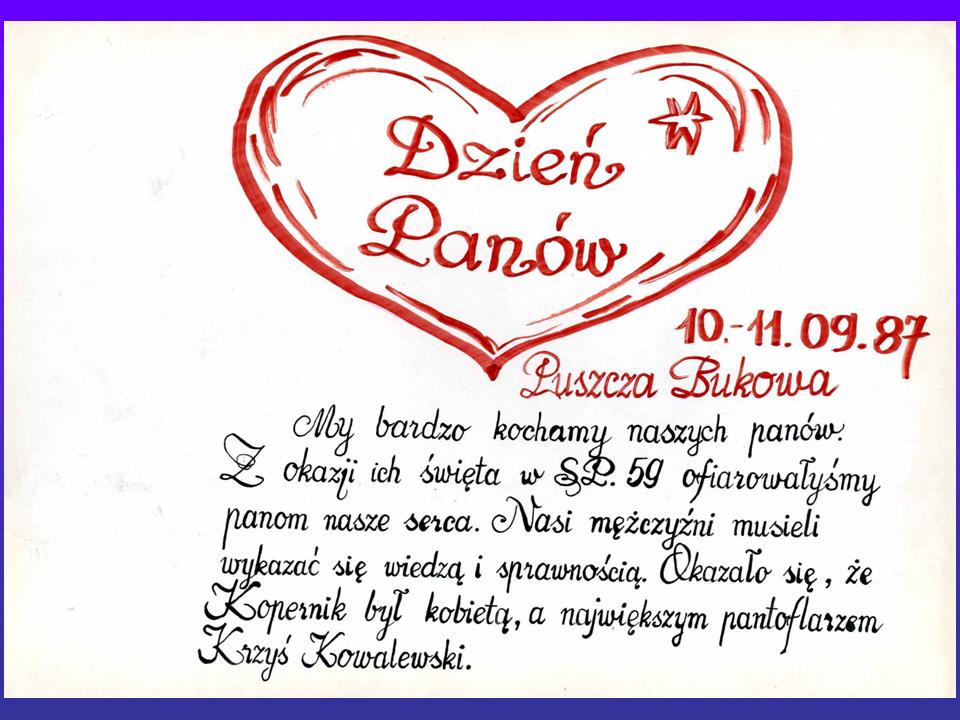 Dzień
Panów
10.-11.09.87
Puszcza Bukowa
My bardzo kochamy naszych panów.
Z okazji ich święta w SP. 59 ofiarowałyśmy
panom nasze serca. Nasi mężczyźni musieli
wykazać się wiedzą i sprawnością. Okazało się, że
Kopernik był kobietą, a największym pantoflarzem
Krzyś Kowalewski.